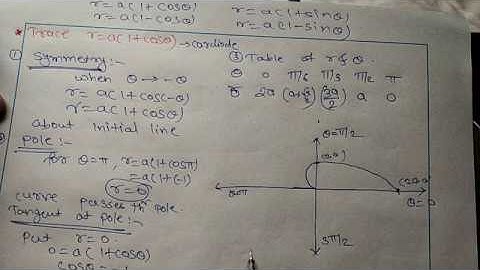 r=a(1+cosθ)
r=a(1-cosθ)
r=a(1+sinθ)
r=a(1-sinθ)
* Trace r=a(1+cosθ) → cardiode
① Symmetry:-
when θ → -θ
r= a(1+cos(-θ)
r= a(1+cosθ)
about initial line
Pole:-
for θ=π, r=a(1+cosπ)
=a(1+(-1)
r=0
curve passes th' pole.
Tangent at pole:-
Put r=0
0=a(1+cosθ)
cosθ=-1
③ Table of r & θ.
θ 0 π/3 π/2 π
2a a 0
θ=π/2
θ=π
θ=0
3π/2